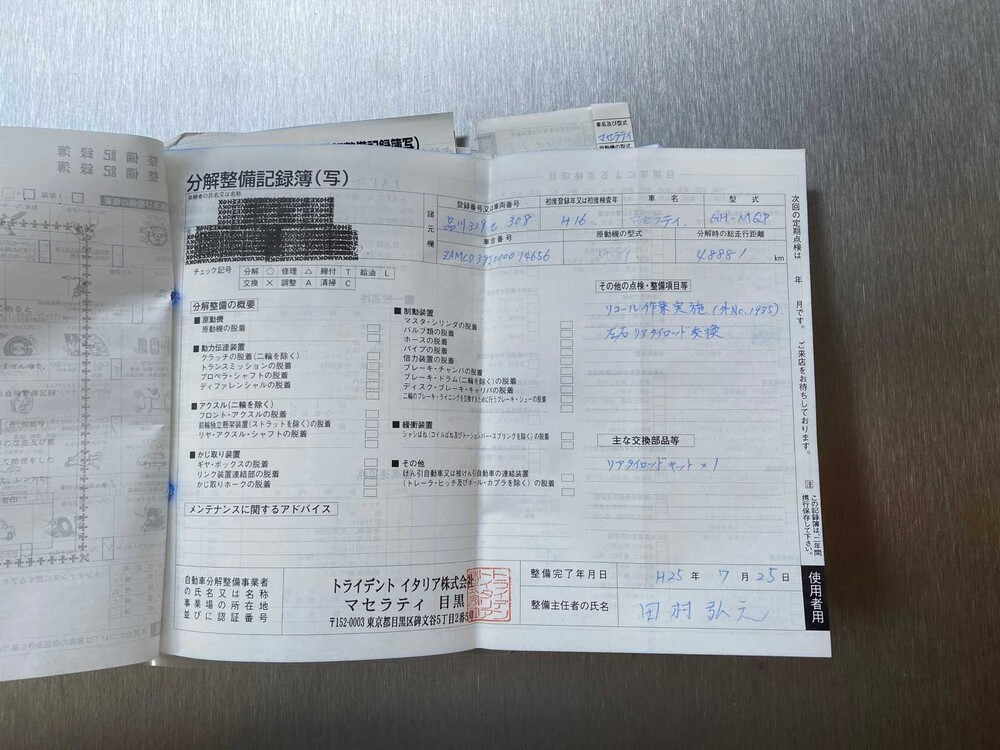 分解整備記録簿(写)
依頼者の氏名又は名称
諸元欄
登録番号又は車両番号
初度登録年又は初度検査年
車名
型式
品川 308
H16
マセラティ
GH-MQP
車台番号
原動機の型式
分解時の総走行距離
48881 km
チェック記号
分解 ○ 修理 △ 締付 T 給油 L
交換 × 調整 A 清掃 C
分解整備の概要
■原動機
原動機の脱着
■動力伝達装置
クラッチの脱着(二輪を除く)
トランスミッションの脱着
プロペラ・シャフトの脱着
ディファレンシャルの脱着
■アクスル(二輪を除く)
フロント・アクスルの脱着
前輪独立懸架装置(ストラットを除く)の脱着
リヤ・アクスル・シャフトの脱着
■かじ取り装置
ギヤ・ボックスの脱着
リンク装置連結部の脱着
かじ取りホークの脱着
■制動装置
マスタ・シリンダの脱着
バルブ類の脱着
ホースの脱着
パイプの脱着
倍力装置の脱着
ブレーキ・チャンバの脱着
ブレーキ・ドラム(二輪を除く)の脱着
ディスク・ブレーキ・キャリパの脱着
二輪のブレーキ・ライニングを交換するために行うブレーキ・シューの脱着
■緩衝装置
シャシばね(コイルばね及びトーションバー・スプリングを除く)の脱着
■その他
けん引自動車又は被けん引自動車の連結装置
(トレーラ・ヒッチ及びボール・カプラを除く)の脱着
その他の点検・整備項目等
リコール作業実施(外No.1935)
左右リアタイロッド交換
主な交換部品等
リアタイロッドキット×1
メンテナンスに関するアドバイス
自動車分解整備事業者
の氏名又は名称
事業場の所在地
並びに認証番号
トライデント イタリア株式会社
マセラティ 目黒
〒152-0003 東京都目黒区碑文谷5丁目2番
整備完了年月日
H25年 7月25日
整備主任者の氏名
田村弘元
次回の定期点検は 年 月です。ご来店をお待ちしております。
注 この記録簿は、二年間
携行保存して下さい。
使用者用
車名及び型式
マセラティ
整備記録簿
整備記録簿